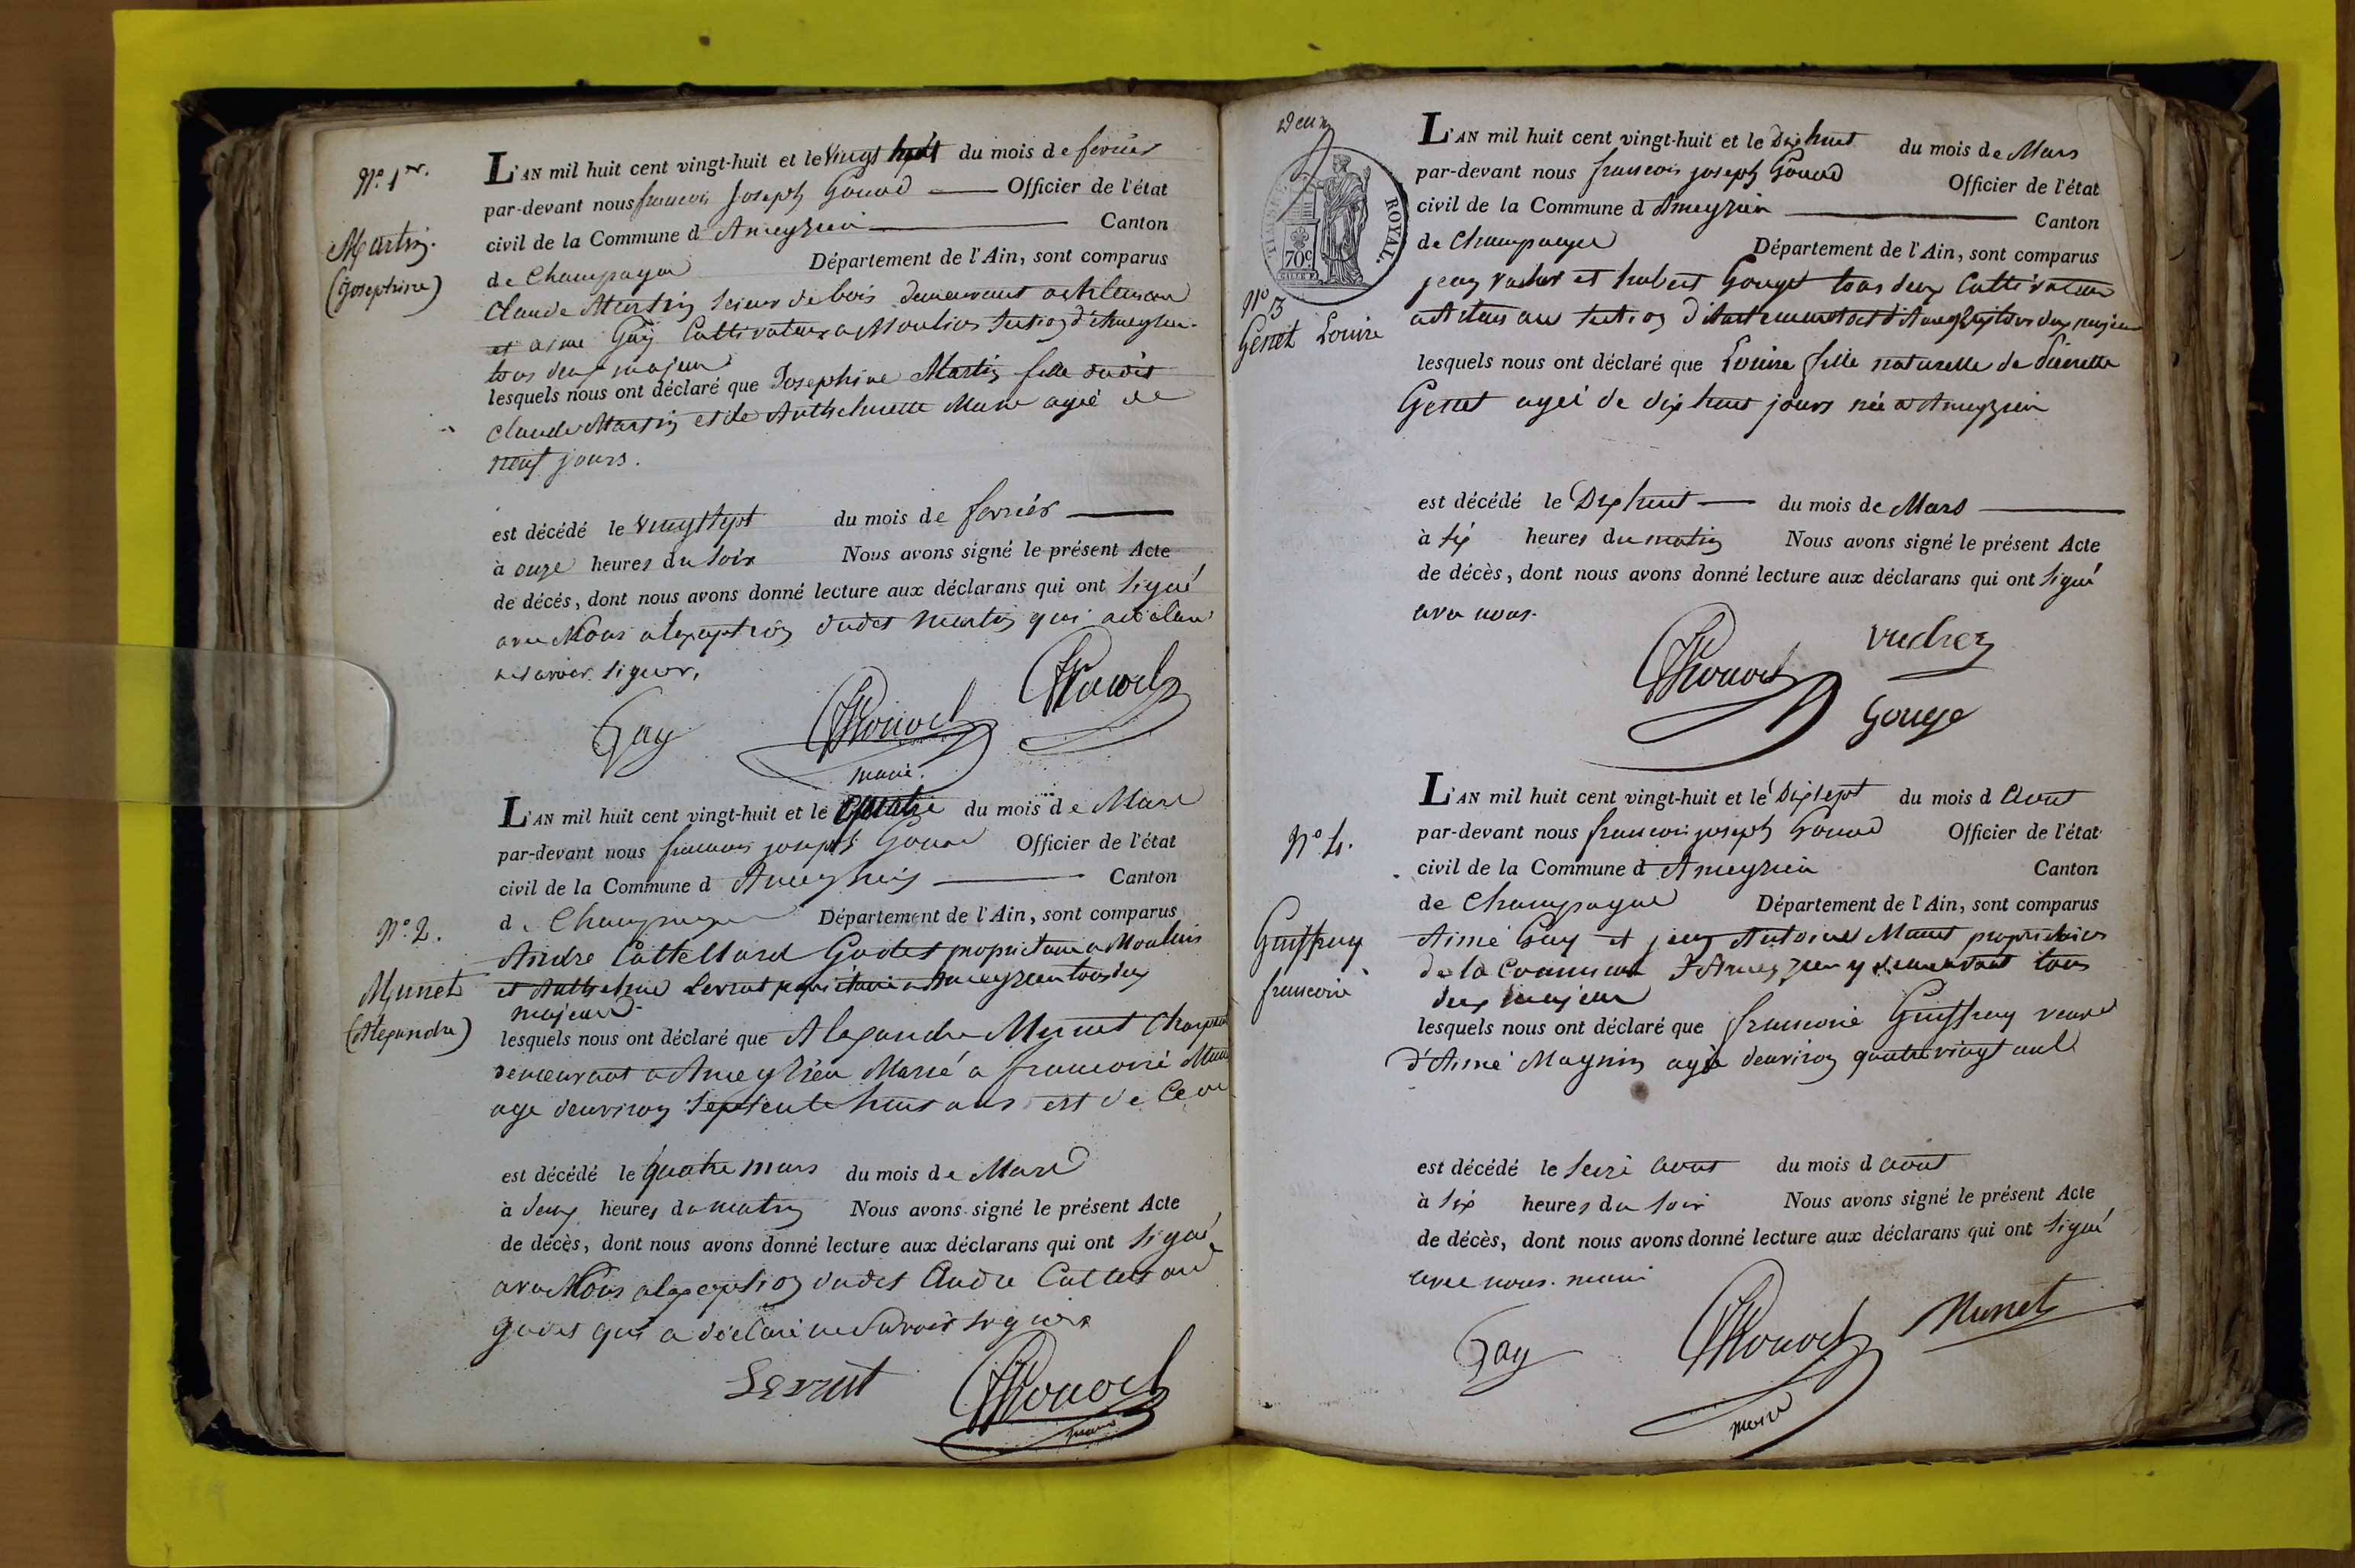 N.o 1er.
Martin.
(Josephine)
L'AN mil huit cent vingt-huit et le vingt huit du mois de fevrier
par-devant nous francois Joseph Gonod Officier de l'état
civil de la Commune d Ameyzieu Canton
de Champagne Département de l'Ain, sont comparus
Claude Martin Scieur de bois demeurant
et aimé Guy Cultivateur a Moulins section d'Ameyzieu
tous deux majeur
lesquels nous ont déclaré que Josephine Martin fille dudit
Claude Martin et de Anthelmette agée de
neuf jours.
est décédé le vingt sept du mois de fevrier
à onze heures du soir Nous avons signé le présent Acte
de décés, dont nous avons donné lecture aux déclarans qui ont signé
avec Nous a lexception dudet Martin qui a
ne savoir signer,
Gay Gonod Gonod
maire.
N.o 2.
Munet
(Alexandre)
L'AN mil huit cent vingt-huit et le quatre du mois de Mars
par-devant nous francois joseph Gonod Officier de l'état
civil de la Commune d Ameyzieu Canton
de Champagne Département de l'Ain, sont comparus
Andre Godet proprietaire a Moulins
et Anthelme Serrut proprietaire a Ameyzieu tous deux
majeur
lesquels nous ont déclaré que Alexandre Munet
demeurant a Ameyzieu Marié a francoise
age denviron septente huit ans est de
est décédé le quatre mars du mois de Mars
à deux heures du matin Nous avons signé le présent Acte
de décès, dont nous avons donné lecture aux déclarans qui ont signé
avec Nous a lexception dudet Andre
godet qui a déclaré ne savoir signer
Serrut Gonod
maire
deux
ROYAL.
70c
N.o 3
Genet Louise
L'AN mil huit cent vingt-huit et le Dix huit du mois de Mars
par-devant nous francois joseph Gonod Officier de l'état
civil de la Commune d Ameyzieu Canton
de Champagne Département de l'Ain, sont comparus
jean et hubert Gouge tous deux Cultivateur
section d'Ameyzieu tous deux majeur
lesquels nous ont déclaré que Louise fille naturelle de Pierrette
Genet agée de dix huit jours née a Ameyzieu
est décédé le Dix huit du mois de Mars
à six heures du matin Nous avons signé le présent Acte
de décès, dont nous avons donné lecture aux déclarans qui ont signé
avec nous.
Gonod
Gouge
N.o 4.
Guiffray
francoise
L'AN mil huit cent vingt-huit et le Dix sept du mois d Aout
par-devant nous francois joseph Gonod Officier de l'état
civil de la Commune d Ameyzieu Canton
de Champagne Département de l'Ain, sont comparus
Aimé Guy et jean Antoine Munet proprietaires
de la Commune d'Ameyzieu y demeurant tous
deux majeur
lesquels nous ont déclaré que francoise Guiffray veuve
d'Aimé Magnin agée denviron quatre vingt ans
est décédé le seize aout du mois d aout
à six heures du soir Nous avons signé le présent Acte
de décès, dont nous avons donné lecture aux déclarans qui ont signé
avec nous.
Gay Gonod Munet
maire